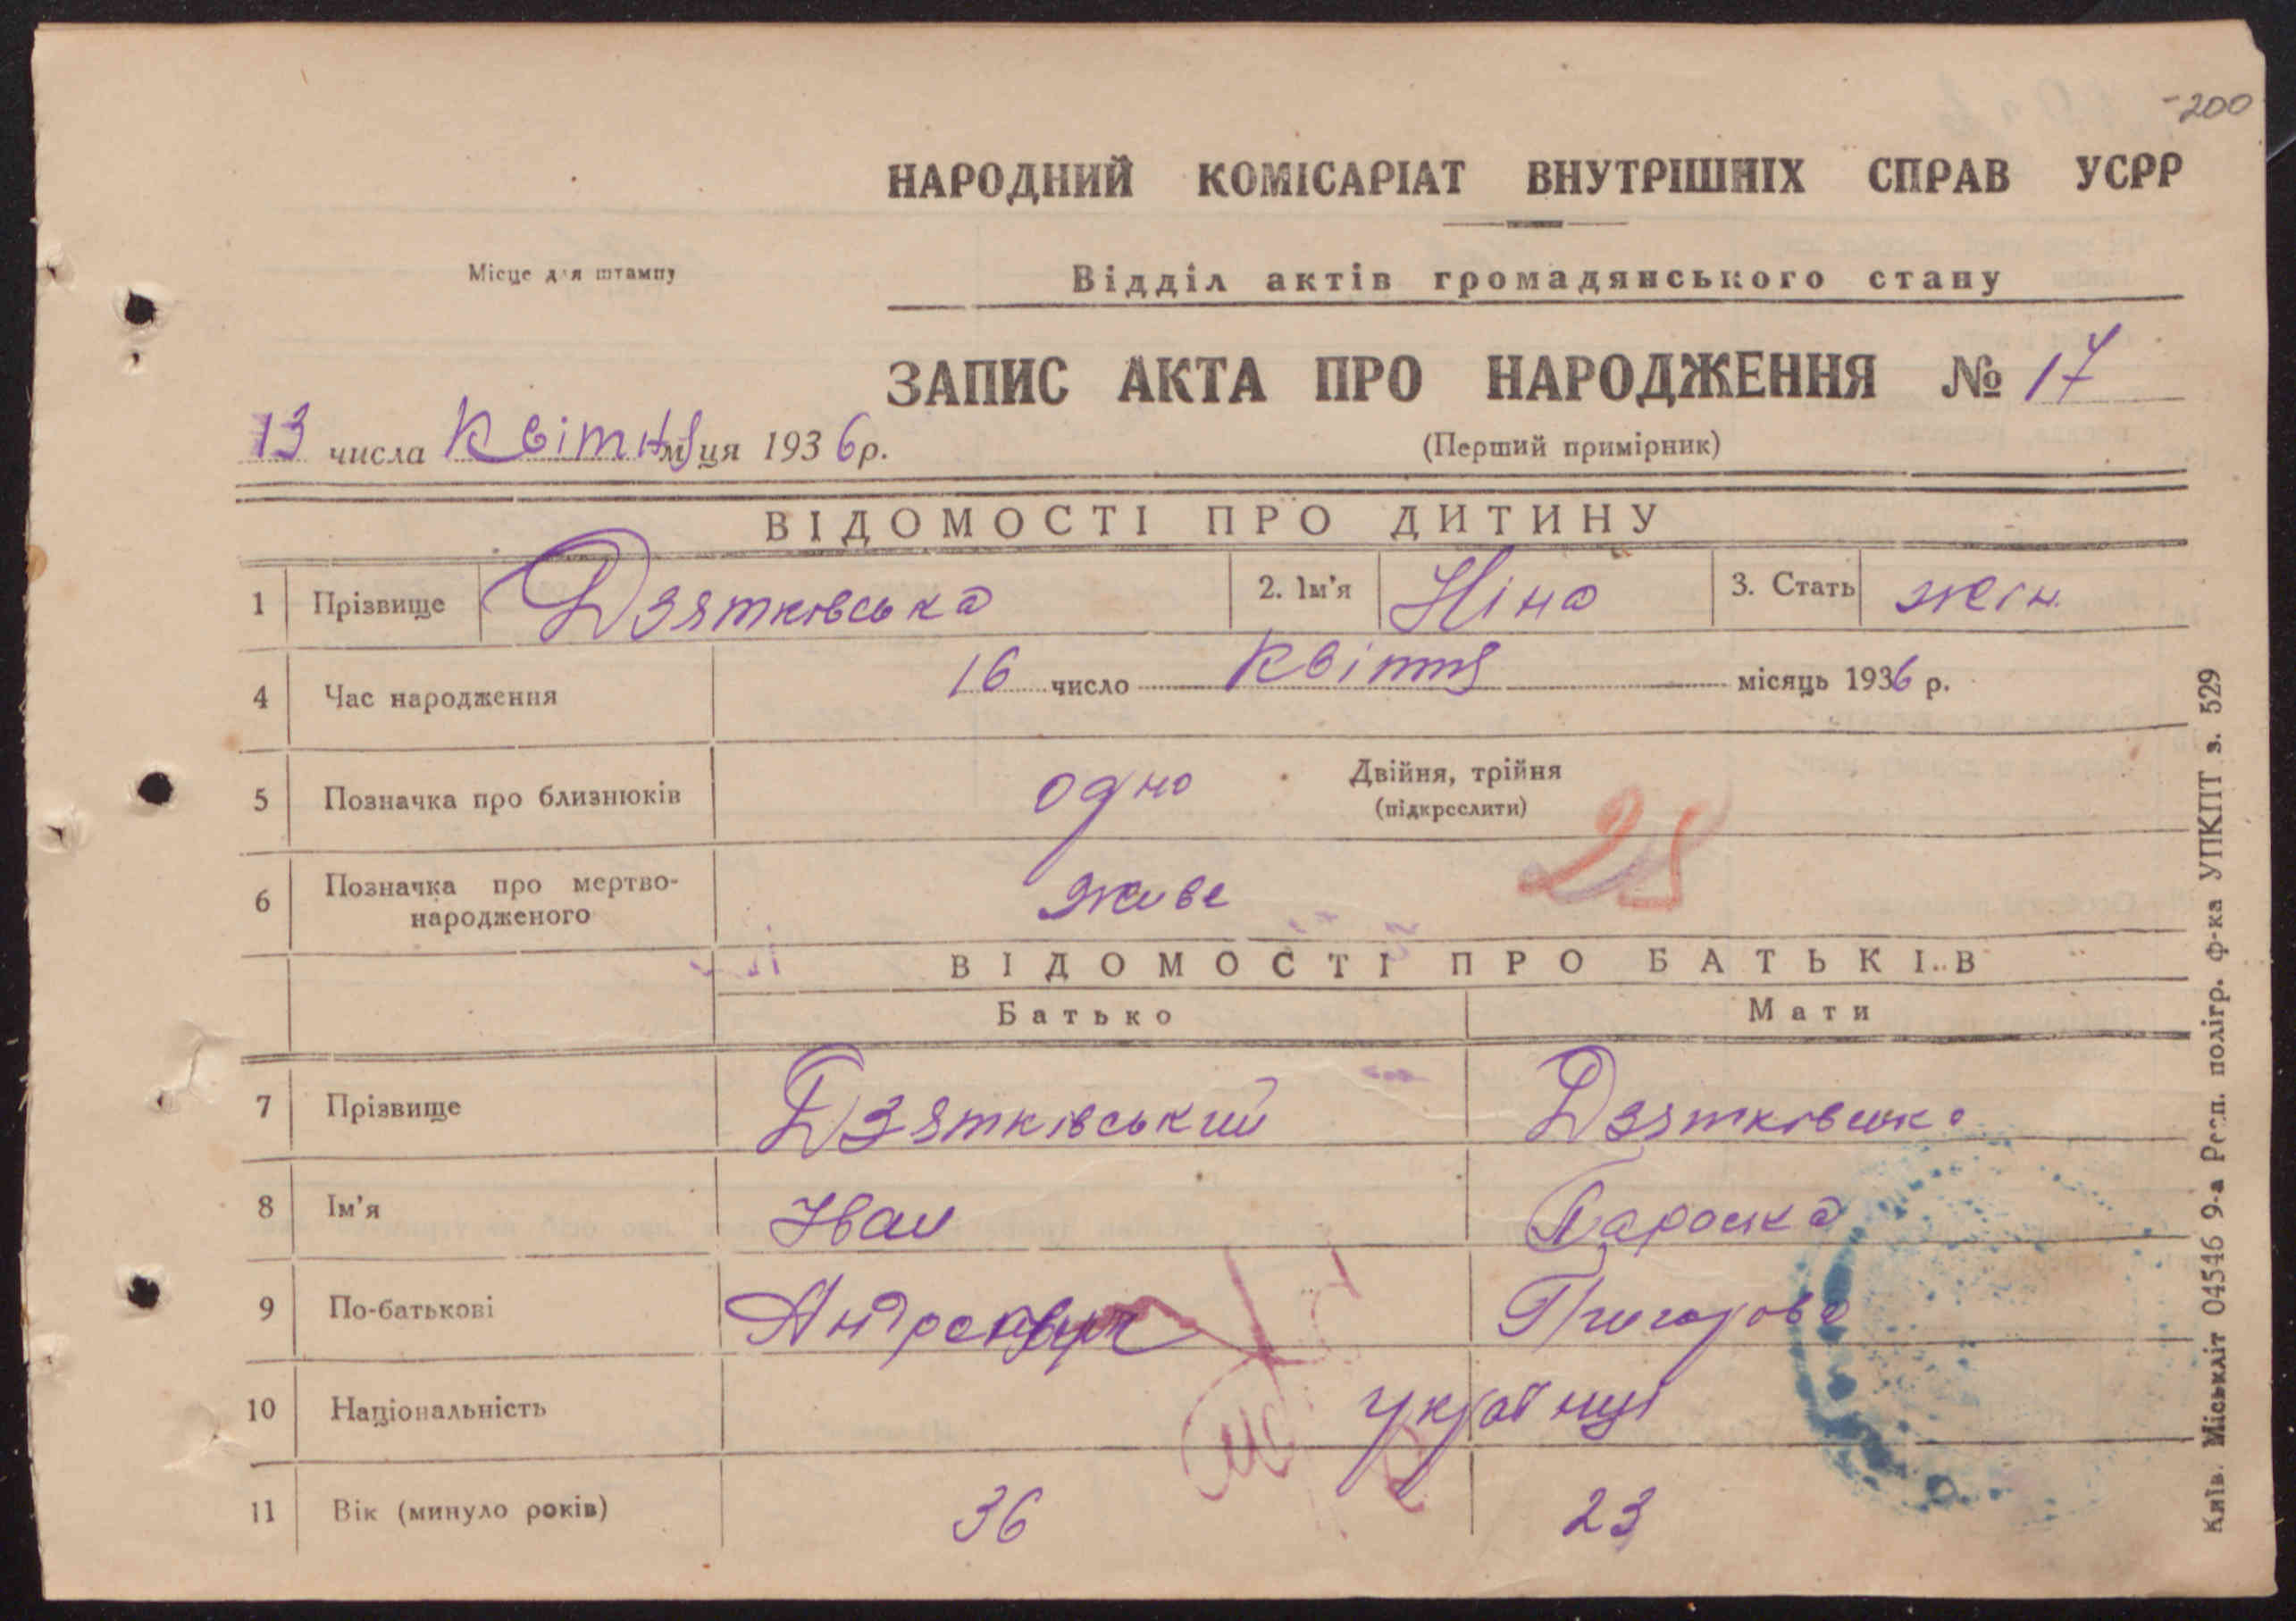 -200
НАРОДНИЙ КОМІСАРІАТ ВНУТРІШНІХ СПРАВ УСРР
Місце для штампу
Відділ актів громадянського стану
ЗАПИС АКТА ПРО НАРОДЖЕННЯ № 17
13 числа Квітня м-ця 1936 р.
(Перший примірник)
ВІДОМОСТІ ПРО ДИТИНУ
1 Прізвище Дзятківська 2. Ім'я Ніна 3. Стать жін.
4 Час народження 16 число Квітня місяць 1936 р.
5 Позначка про близнюків одно Двійня, трійня
(підкреслити)
6 Позначка про мертво-
народженого живе
ВІДОМОСТІ ПРО БАТЬКІВ
Батько Мати
7 Прізвище Дзятківський Дзятківська
8 Ім'я Іван Параска
9 По-батькові Григорова
10 Національність Українці
11 Вік (минуло років) 36 23
Київ. Міськліт 04546 9-а Респ. полігр. ф-ка УПКПТ з. 529